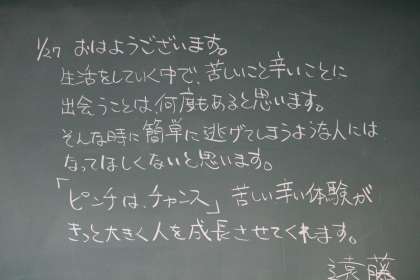 1/27 おはようございます。
生活をしていく中で、苦しいこと辛いことに
出会うことは、何度もあると思います。
そんな時に簡単に逃げてしまうような人には
なってほしくないと思います。
「ピンチは、チャンス」 苦しい辛い体験が
きっと大きく人を成長させてくれます。
遠藤